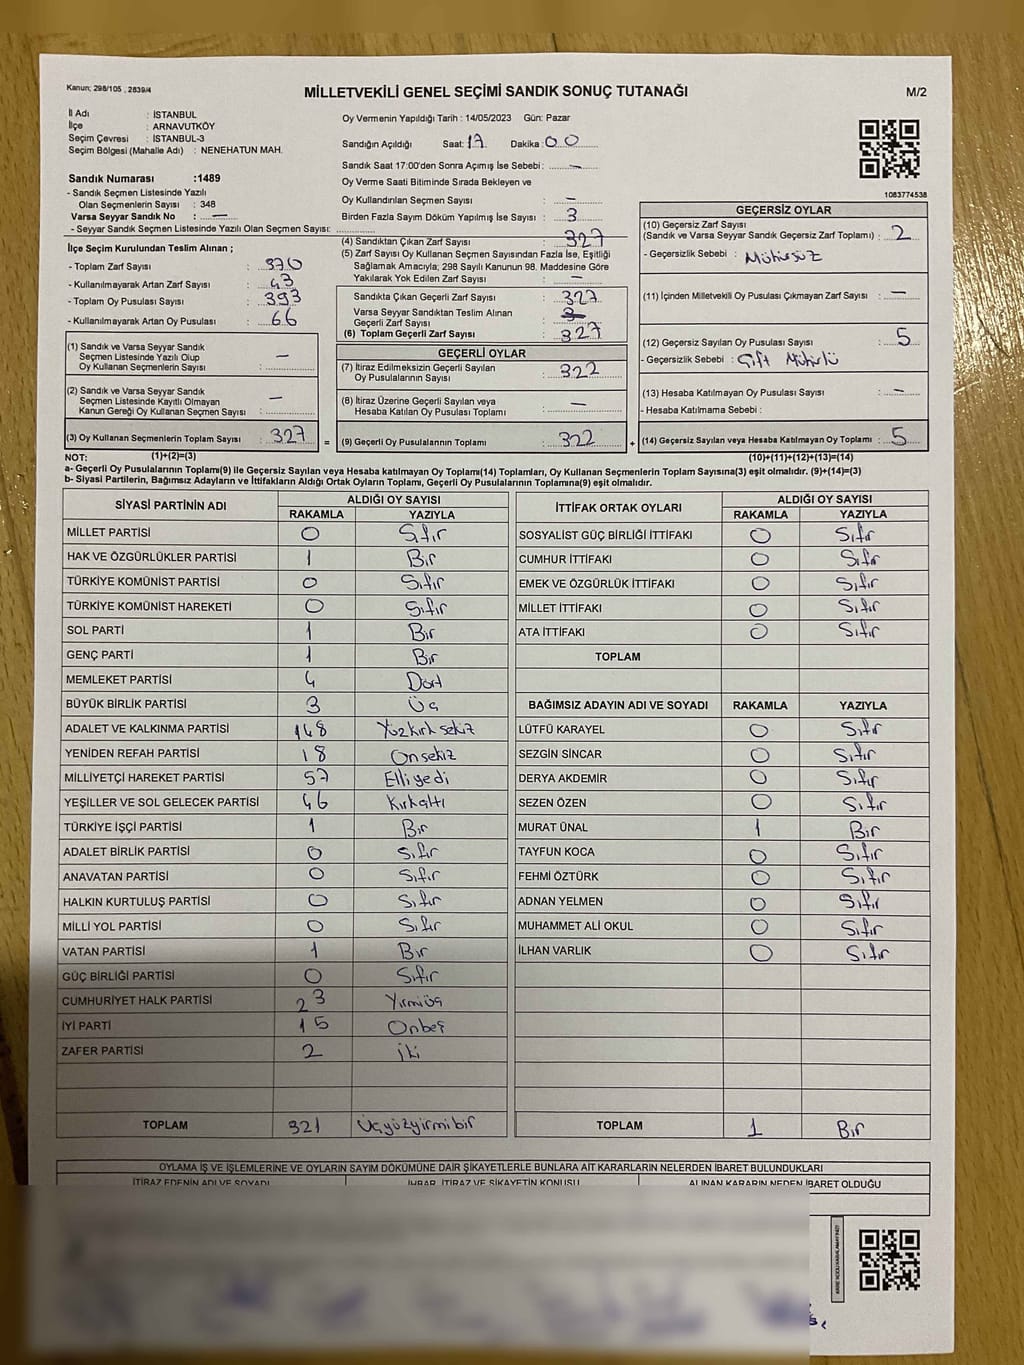 Kanun: 298/105 , 2839/4
MİLLETVEKİLİ GENEL SEÇİMİ SANDIK SONUÇ TUTANAĞI
M/2
İl Adı : İSTANBUL
İlçe : ARNAVUTKÖY
Seçim Çevresi : İSTANBUL-3
Seçim Bölgesi (Mahalle Adı) : NENEHATUN MAH.
Sandık Numarası :1489
- Sandık Seçmen Listesinde Yazılı
Olan Seçmenlerin Sayısı : 348
Varsa Seyyar Sandık No : —
- Seyyar Sandık Seçmen Listesinde Yazılı Olan Seçmen Sayısı:
İlçe Seçim Kurulundan Teslim Alınan ;
- Toplam Zarf Sayısı : 370
- Kullanılmayarak Artan Zarf Sayısı : 43
- Toplam Oy Pusulası Sayısı : 393
- Kullanılmayarak Artan Oy Pusulası : 66
(1) Sandık ve Varsa Seyyar Sandık
Seçmen Listesinde Yazılı Olup
Oy Kullanan Seçmenlerin Sayısı : —
(2) Sandık ve Varsa Seyyar Sandık
Seçmen Listesinde Kayıtlı Olmayan
Kanun Gereği Oy Kullanan Seçmen Sayısı : —
(3) Oy Kullanan Seçmenlerin Toplam Sayısı : 327 =
(1)+(2)=(3)
Oy Vermenin Yapıldığı Tarih : 14/05/2023 Gün: Pazar
Sandığın Açıldığı Saat: 17 Dakika: 00
Sandık Saat 17:00'den Sonra Açımış İse Sebebi : —
Oy Verme Saati Bitiminde Sırada Bekleyen ve
Oy Kullandırılan Seçmen Sayısı : —
Birden Fazla Sayım Döküm Yapılmış İse Sayısı : 3
(4) Sandıktan Çıkan Zarf Sayısı : 327
(5) Zarf Sayısı Oy Kullanan Seçmen Sayısından Fazla İse, Eşitliği
Sağlamak Amacıyla, 298 Sayılı Kanunun 98. Maddesine Göre
Yakılarak Yok Edilen Zarf Sayısı : —
Sandıkta Çıkan Geçerli Zarf Sayısı : 327
Varsa Seyyar Sandıktan Teslim Alınan
Geçerli Zarf Sayısı :
(6) Toplam Geçerli Zarf Sayısı : 327
GEÇERLİ OYLAR
(7) İtiraz Edilmeksizin Geçerli Sayılan
Oy Pusulalarının Sayısı : 322
(8) İtiraz Üzerine Geçerli Sayılan veya
Hesaba Katılan Oy Pusulası Toplamı : —
(9) Geçerli Oy Pusulalarının Toplamı : 322 +
1083774538
GEÇERSİZ OYLAR
(10) Geçersiz Zarf Sayısı
(Sandık ve Varsa Seyyar Sandık Geçersiz Zarf Toplamı) : 2
- Geçersizlik Sebebi : Mühürsüz
(11) İçinden Milletvekili Oy Pusulası Çıkmayan Zarf Sayısı : —
(12) Geçersiz Sayılan Oy Pusulası Sayısı : 5
- Geçersizlik Sebebi : Çift Mühürlü
(13) Hesaba Katılmayan Oy Pusulası Sayısı : —
- Hesaba Katılmama Sebebi :
(14) Geçersiz Sayılan veya Hesaba Katılmayan Oy Toplamı : 5
(10)+(11)+(12)+(13)=(14)
NOT:
a- Geçerli Oy Pusulalarının Toplamı(9) ile Geçersiz Sayılan veya Hesaba katılmayan Oy Toplamı(14) Toplamları, Oy Kullanan Seçmenlerin Toplam Sayısına(3) eşit olmalıdır. (9)+(14)=(3)
b- Siyasi Partilerin, Bağımsız Adayların ve İttifakların Aldığı Ortak Oyların Toplamı, Geçerli Oy Pusulalarının Toplamına(9) eşit olmalıdır.
SİYASİ PARTİNİN ADI ALDIĞI OY SAYISI
RAKAMLA YAZIYLA
MİLLET PARTİSİ 0 Sıfır
HAK VE ÖZGÜRLÜKLER PARTİSİ 1 Bir
TÜRKİYE KOMÜNİST PARTİSİ 0 Sıfır
TÜRKİYE KOMÜNİST HAREKETİ 0 Sıfır
SOL PARTİ 1 Bir
GENÇ PARTİ 1 Bir
MEMLEKET PARTİSİ 4 Dört
BÜYÜK BİRLİK PARTİSİ 3 Üç
ADALET VE KALKINMA PARTİSİ 148 Yüzkırk sekiz
YENİDEN REFAH PARTİSİ 18 Onsekiz
MİLLİYETÇİ HAREKET PARTİSİ 57 Elliyedi
YEŞİLLER VE SOL GELECEK PARTİSİ 46 Kırkaltı
TÜRKİYE İŞÇİ PARTİSİ 1 Bir
ADALET BİRLİK PARTİSİ 0 Sıfır
ANAVATAN PARTİSİ 0 Sıfır
HALKIN KURTULUŞ PARTİSİ 0 Sıfır
MİLLİ YOL PARTİSİ 0 Sıfır
VATAN PARTİSİ 1 Bir
GÜÇ BİRLİĞİ PARTİSİ 0 Sıfır
CUMHURİYET HALK PARTİSİ 23 Yirmiüç
İYİ PARTİ 15 Onbeş
ZAFER PARTİSİ 2 İki
TOPLAM 321 Üçyüzyirmibir
İTTİFAK ORTAK OYLARI ALDIĞI OY SAYISI
RAKAMLA YAZIYLA
SOSYALİST GÜÇ BİRLİĞİ İTTİFAKI 0 Sıfır
CUMHUR İTTİFAKI 0 Sıfır
EMEK VE ÖZGÜRLÜK İTTİFAKI 0 Sıfır
MİLLET İTTİFAKI 0 Sıfır
ATA İTTİFAKI 0 Sıfır
TOPLAM
BAĞIMSIZ ADAYIN ADI VE SOYADI RAKAMLA YAZIYLA
LÜTFÜ KARAYEL 0 Sıfır
SEZGİN SİNCAR 0 Sıfır
DERYA AKDEMİR 0 Sıfır
SEZEN ÖZEN 0 Sıfır
MURAT ÜNAL 1 Bir
TAYFUN KOCA 0 Sıfır
FEHMİ ÖZTÜRK 0 Sıfır
ADNAN YELMEN 0 Sıfır
MUHAMMET ALİ OKUL 0 Sıfır
İLHAN VARLIK 0 Sıfır
TOPLAM 1 Bir
OYLAMA İŞ VE İŞLEMLERİNE VE OYLARIN SAYIM DÖKÜMÜNE DAİR ŞİKAYETLERLE BUNLARA AİT KARARLARIN NELERDEN İBARET BULUNDUKLARI
İTİRAZ EDENİN ADI VE SOYADI İHBAR, İTİRAZ VE ŞİKAYETİN KONUSU ALINAN KARARIN NEDEN İBARET OLDUĞU